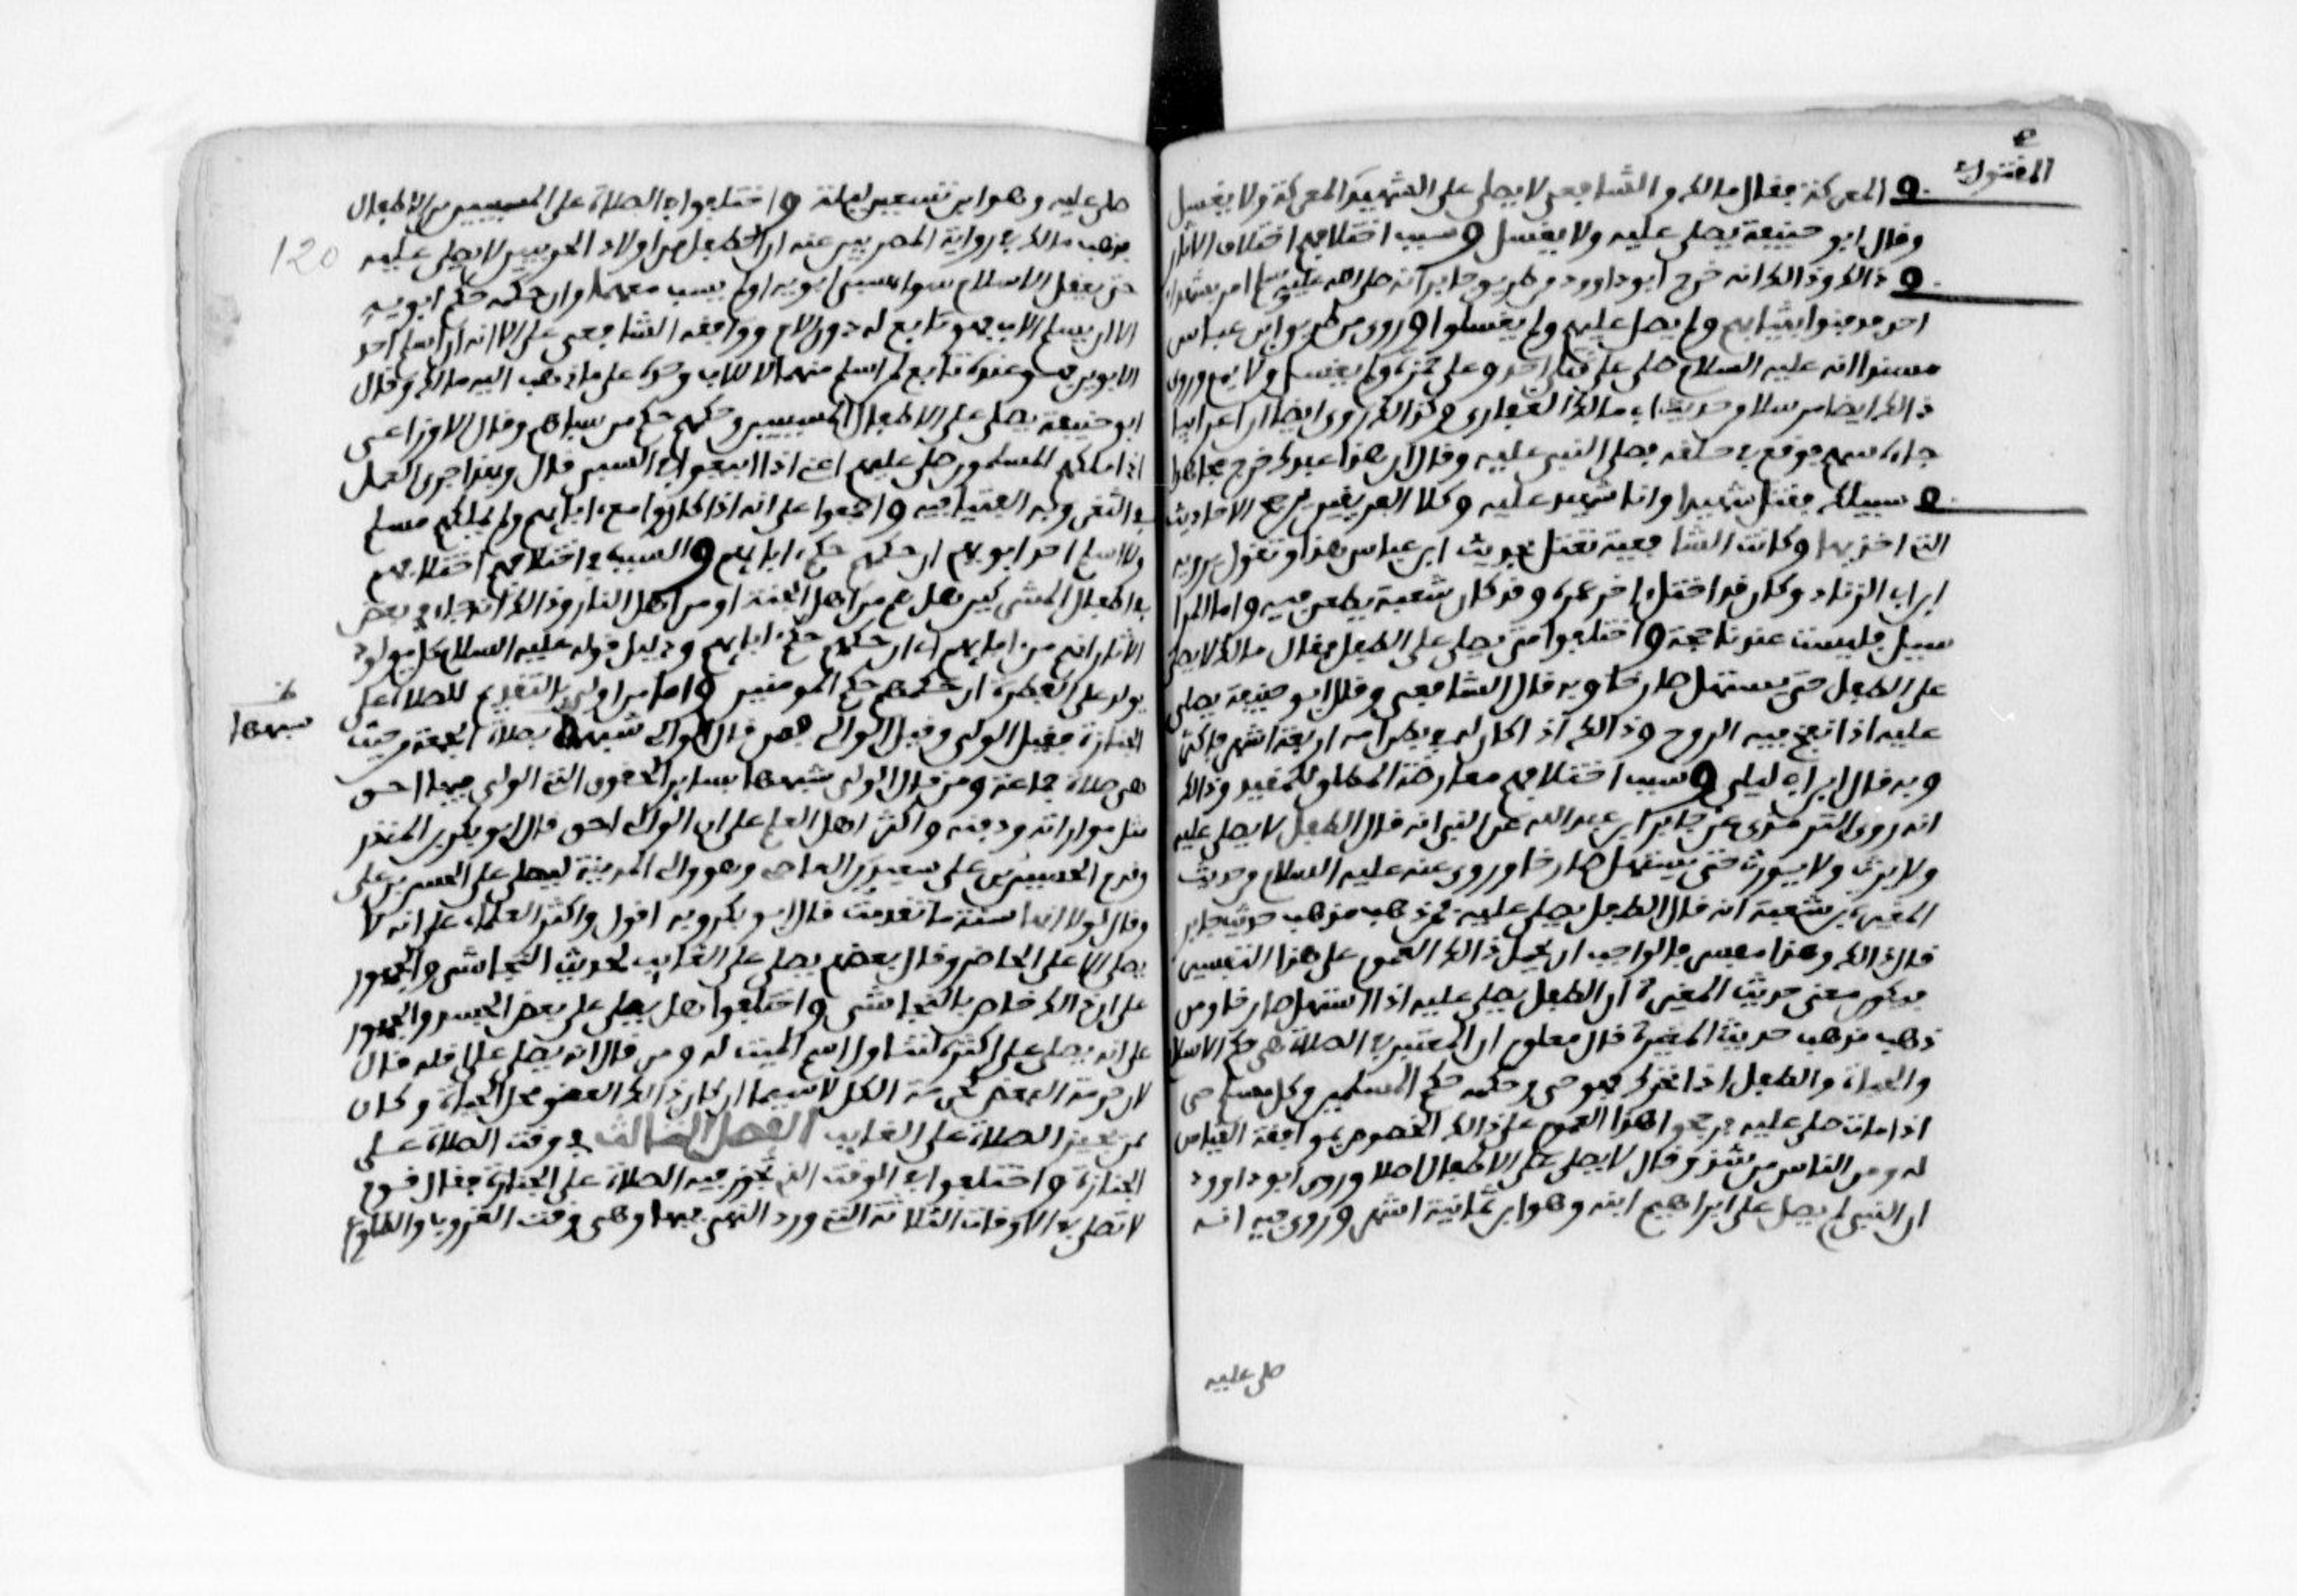 المقتول في
في المعركة فقال مالك والشافعي لا يصلى على الشهيد المعركة ولا يغسل
وقال ابو حنيفة يصلى عليه ولا يغسل وسبب اختلافهم اختلاف الاثار
في ذالك وذالك انه خرج ابو داوود من طريق جابر انه صلى الله عليه وسلم امر بشهداء
احد فدفنوا بثيابهم ولم يصل عليهم ولم يغسلوا وروى من طريق ابن عباس
مسندا انه عليه السلام صلى على قتلى احد وعلى حمزة ولم يغسل ولا يمم وروى
ذالك ايضا مرسلا من حديث ابي مالك الغفاري وكذالك روى ايضا ان اعرابيا
جاءه سهم فوقع في حلقه فصلى النبي عليه وقال ان هذا عبدك خرج مجاهدا
في سبيلك فقتل شهيدا وانا شهيد عليه وكلا الفريقين يرجح الاحاديث
التي اخذ بها وكانت الشافعية تعتل بحديث ابن عباس هذا وتقول يرويه
ابن ابي الزناد وكان قد اختل ءاخر عمره وقد كان شعبة يطعن فيه واما المرا
سيل فليست عندنا حجة واختلفوا متى يصلى على الطفل فقال مالك لا يصلى
على الطفل حتى يستهل صارخا وبه قال الشافعي وقال ابو حنيفة يصلى
عليه اذا نفخ فيه الروح وذالك اذا كان له في بطن امه اربعة اشهر فاكثر
وبه قال ابن ابي ليلى وسبب اختلافهم معارضة المطلق للمقيد وذالك
انه روى الترمذي عن جابر ابن عبد الله عن النبي انه قال الطفل لا يصلى عليه
ولا يرث ولا يورث حتى يستهل صارخا وروى عنه عليه السلام من حديث
المغيرة بن شعبة انه قال الطفل يصلى عليه فمن ذهب مذهب حديث جابر
قال ذالك وهذا مفسر فالواجب ان يحمل ذالك العموم على هذا التفسير
فيكون معنى حديث المغيرة ان الطفل يصلى عليه اذا استهل صارخا ومن
ذهب مذهب حديث المغيرة قال معلوم ان المعتبر في الصلاة هي حكم الاسلا
والحياة والطفل اذا تحرك فهو حي وحكمه حكم المسلمين وكل مسلم حي
اذا مات صلى عليه فرجحوا هذا العموم على ذالك الخصوص بموافقة القياس
له ومن الناس من شذ وقال لا يصلى على الاطفال اصلا وروى ابو داوود
ان النبي لم يصل على ابراهيم ابنه وهو ابن ثمانية اشهر وروى فيه انه
صلى عليه
صلى عليه وهو ابن تسعين ليلة واختلفوا في الصلاة على المسبيين من الاطفال
120
فذهب مالك في رواية المصريين عنه ان الطفل من اولاد الحربيين لا يصلى عليه
حتى يعقل الاسلام سواء سبي مع ابويه او لم يسب معهما وان حكمه حكم ابويه
الا ان يسلم الاب فهو تابع له دون الام ووافقه الشافعي على الا انه ان اسلم احد
الابوين فهو عنده تابع لمن اسلم منهما لا للاب وحده على ما ذهب اليه مالك وقال
ابو حنيفة يصلى على الاطفال المسبيين وحكمهم حكم من سباهم وقال الاوزاعي
اذا ملكهم المسلمون صلي عليهم اعني اذا ابيعوا في السبي قال وبهذا جرى العمل
في الثغر وبه الفتيا فيه واجمعوا على انه اذا كانوا مع ءابايهم ولم يملكهم مسلم
ولا اسلم احد ابويهم ان حكمهم حكم ءابايهم والسبب في اختلافهم اختلافهم
في اطفال المشركين هل هم من اهل الجنة او من اهل النار وذالك انه جاء في بعض
الاثار انهم من ءابايهم اي ان حكمهم حكم ءابايهم ودليل قوله عليه السلام كل مولود
يولد على الفطرة ان حكمهم حكم المومنين واما من اولى بالتقديم للصلاة على
الجنازة فقيل الولي وقيل الوالي فمن قال الوالي شبهها بصلاة الجمعة من حيث
شبهها
هي صلاة جماعة ومن قال الولي شبهها بساير الحقوق التي الولي فيها احق
مثل مواراته ودفنه واكثر اهل العلم على ان الوالي احق قال ابو بكر بن المنذر
وقدم الحسين بن علي سعيد بن العاص وهو والي المدينة ليصلي على الحسن بن علي
وقال لولا انها سنة ما تقدمت قال ابو بكر وبه اقول واكثر العلماء على انه لا
يصلى الا على الحاضر وقال بعضهم يصلى على الغايب لحديث النجاشي والجمهور
على ان ذالك خاص بالنجاشي واختلفوا هل يصلى على بعض الجسد والجمهور
على انه يصلى على اكثره لتناول اسم الميت له ومن قال انه يصلى على اقله قال
لان حرمة البعض كحرمة الكل لا سيما ان كان ذالك العضو محل الحياة وكان
ممن يجيز الصلاة على الغايب الفصل الثالث في وقت الصلاة على
الجنازة واختلفوا في الوقت الذي تجوز فيه الصلاة على الجنازة فقال قوم
لا تصلى في الاوقات الثلاثة التي ورد النهي فيها وهي وقت الغروب والطلوع